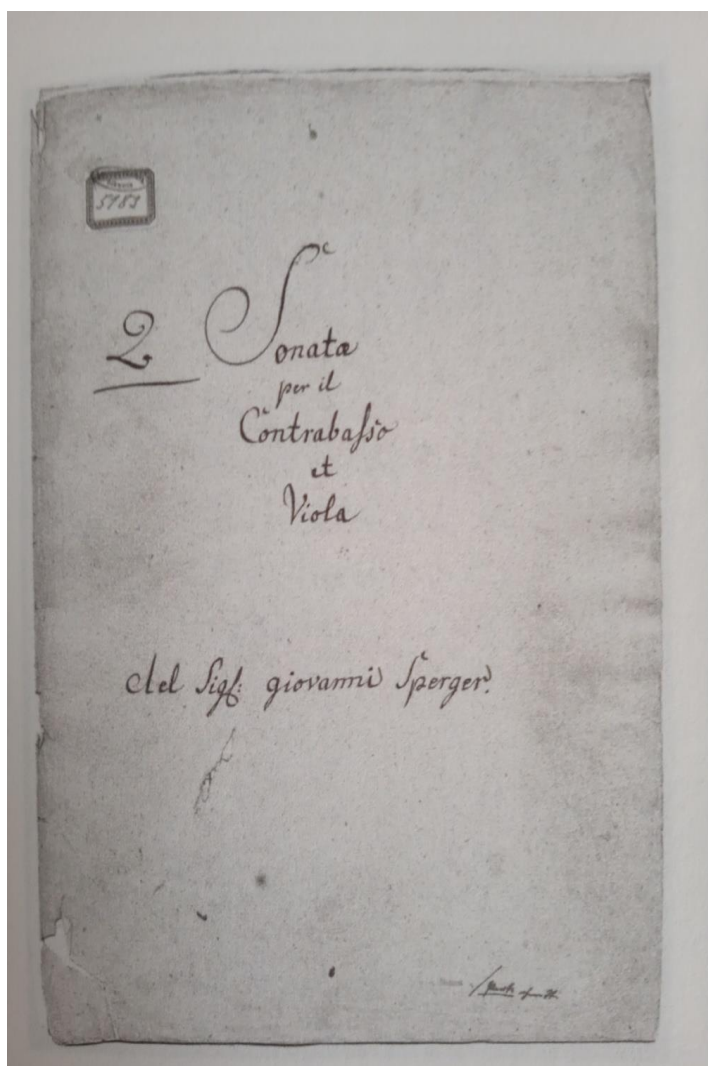 5181
2 Sonata
per il
Contrabasso
et
Viola
del Sigl: giovanni Sperger.